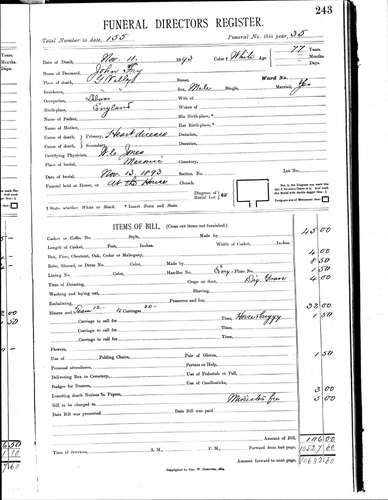 243
FUNERAL DIRECTORS REGISTER.
Total Number to date, 155 Funeral No. this year, 35
Date of Death, Nov. 11. 1893 Color † White Age 77 Years.
Months.
Days.
Name of Deceased, John
Place of death, Street. Ward No.
Residence, " " Sex, Male Single, Married, Yes
Occupation, Wife of
Birth-place, England Widow of
Name of Father, His Birth-place, *
Name of Mother, Her Birth-place, *
Cause of death Primary, Heart disease Duration,
Cause of death Secondary, Duration,
Certifying Physician, W.C. Jones
Place of burial, Masonic Cemetery, Lot No.
Date of burial, Nov. 13, 1893 Section No.
Funeral held at House, or At the House Church.
Diagram of Burial Lot
† State whether White or Black. * Insert Town and State.
ITEMS OF BILL. (Cross out items not furnished.)
Casket or Coffin No. Style, Made by 45 00
Length of Casket, Feet, Inches. Width of Casket, Inches.
Box, Pine, Chestnut, Oak, Cedar or Mahogany, 4 00
Robe, Shroud, or Dress No. Color, Made by 8 50
Lining No. Color, Handles No. Eng. Plate No. 1 50
Time of Dressing, Crape on door, Dig Grave 4 00
Washing and laying out, Shaving,
Embalming, Preserver and Ice,
Hearse and Team 12- 4 Carriages 20- 32 00
Carriage to call for Time, Horse & buggy 1 50
Carriage to call for Time,
Carriage to call for Time,
Flowers,
Use of Folding Chairs, Pair of Gloves, 1 50
Personal attendance, Porters or Help,
Delivering Box to Cemetery, Use of Pedestals or Pall,
Badges for Bearers, Use of Candlesticks,
Inserting death Notices in Papers, 3 00
Bill to be charged to Minister fee 5 00
Date Bill was presented Date Bill was paid
Amount of Bill, 106 00
Time of Services, A. M., P. M., Forward from last page,
Amount forward to next page,